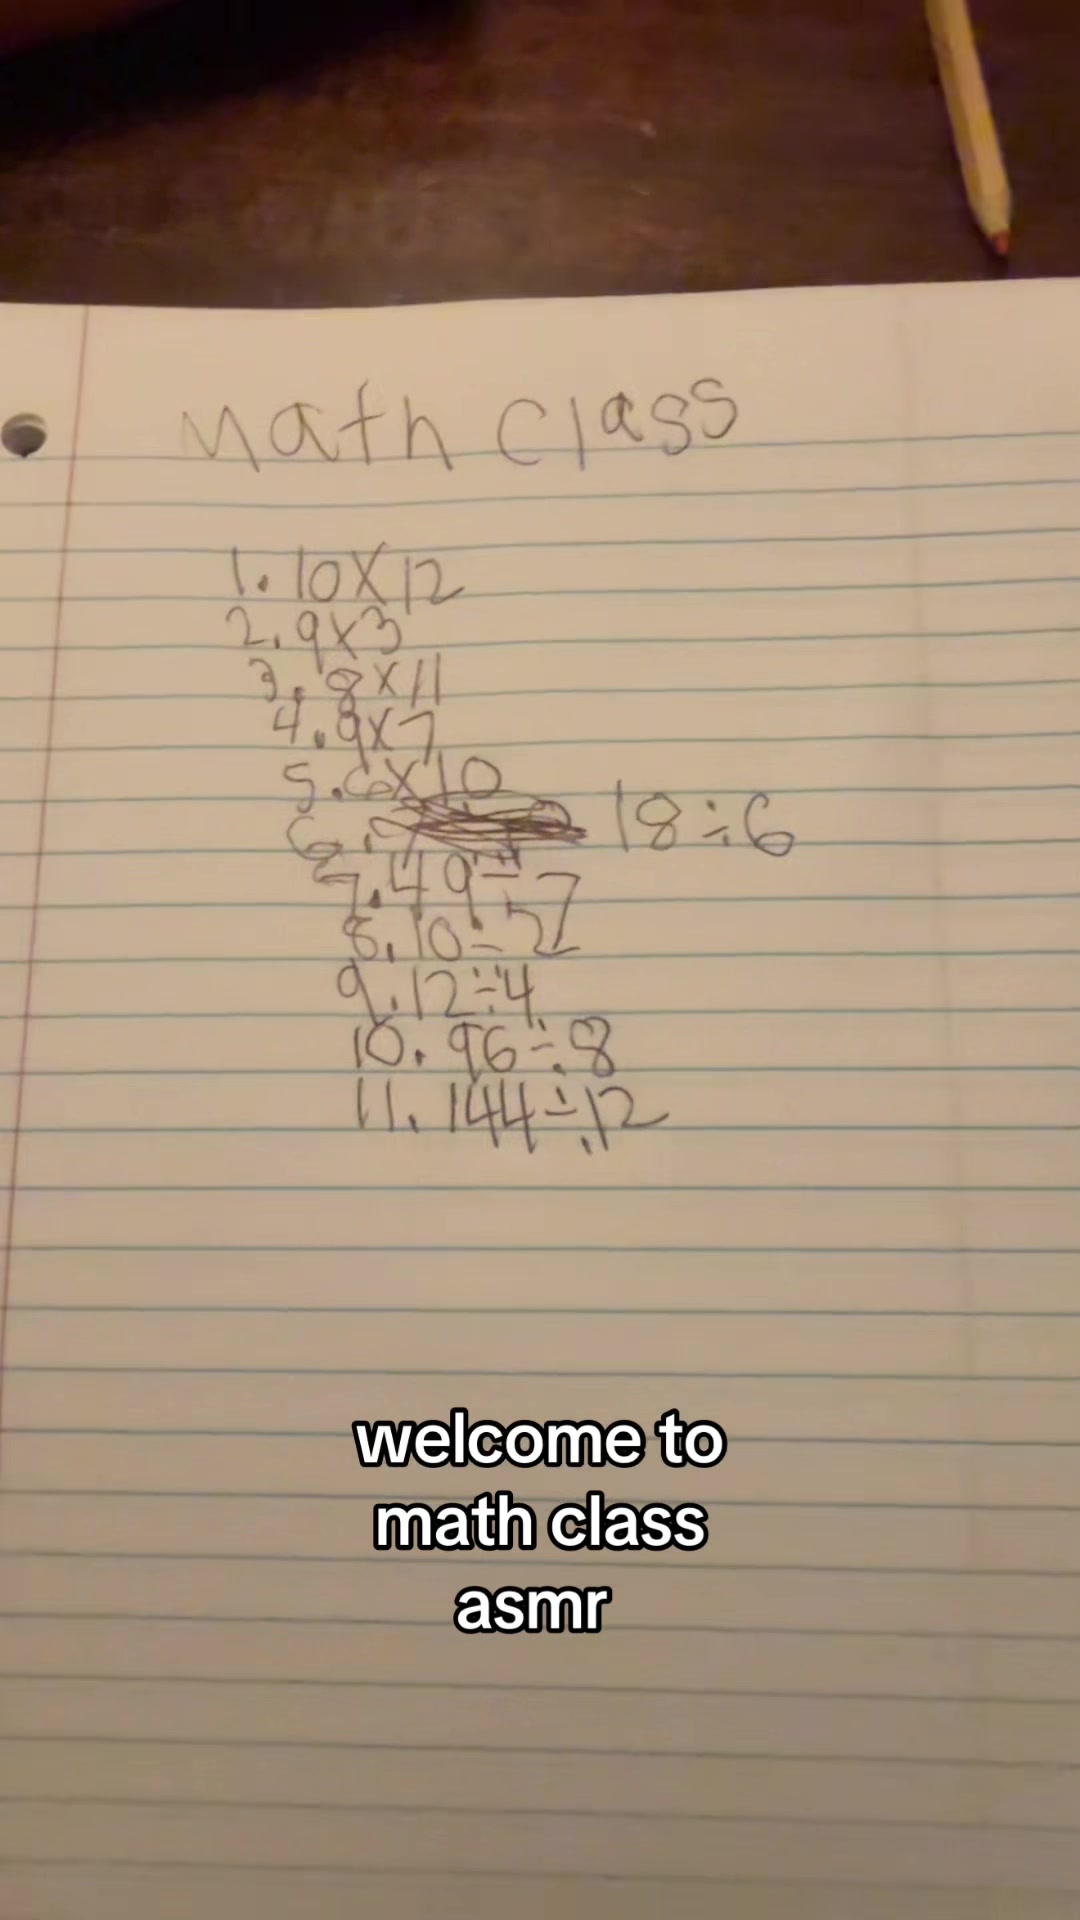 Math Class
1. 10X12
2. 9x3
3. 8x11
4. 9x7
5. 6x10
6. 18÷6
7. 49÷7
8. 10÷2
9. 12÷4
10. 96÷8
11. 144÷12
welcome to
math class
asmr